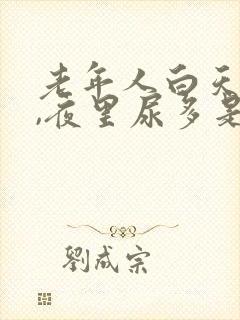 老年人白天
,夜里尿多是
劉成宗